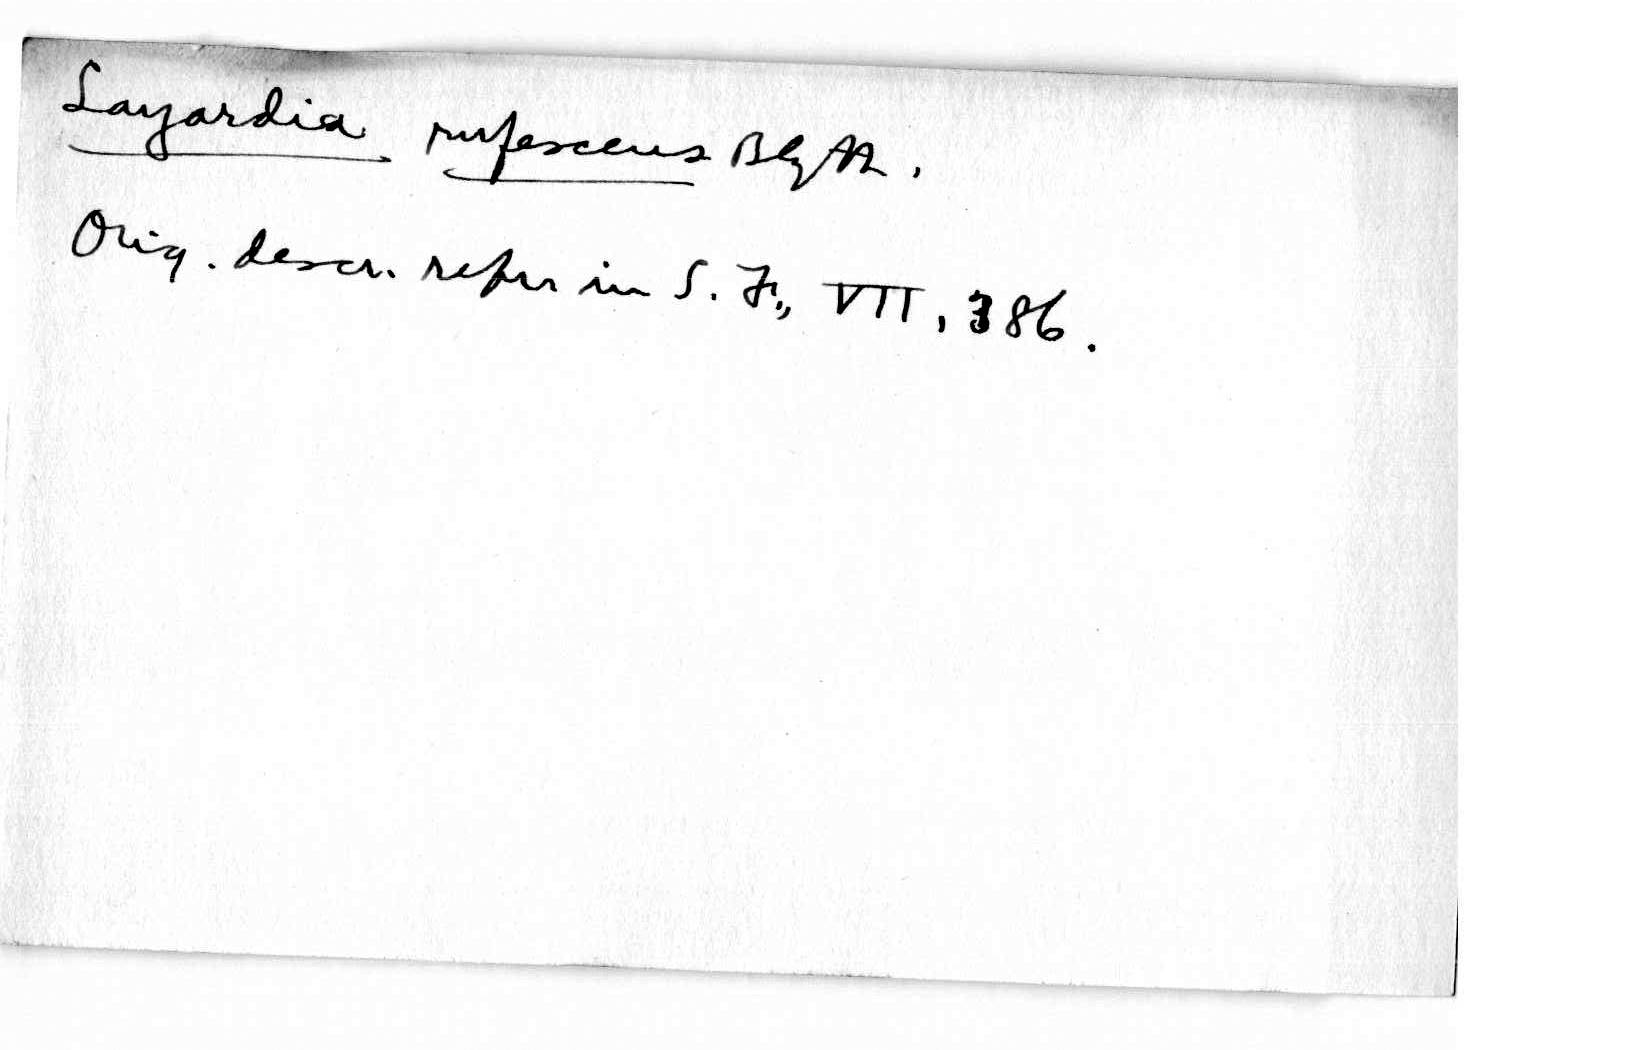 Layardia rufescens Blyth.
Orig. descr. repr in S. F., VII, 386.